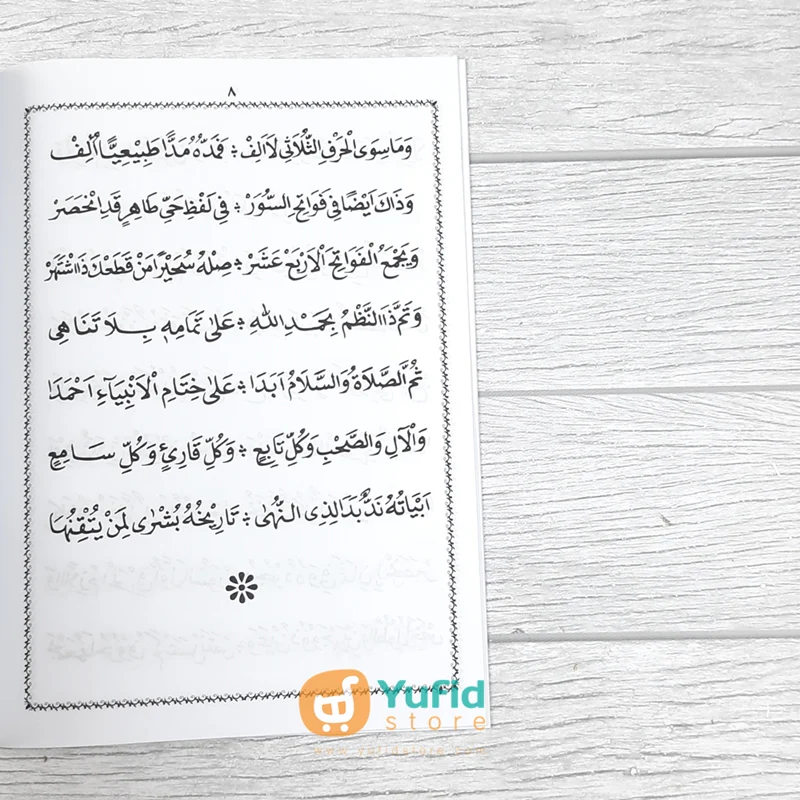 ٨
وَمَا سِوَى الْحَرْفِ الثُّلَاثِي لَا اَلِفْ ؞ فَمَدُّهُ مَدًّا طَبِيْعِيًّا اُلِفْ
وَذَاكَ اَيْضًا فِي فَوَاتِحِ السُّوَرْ ؞ فِي لَفْظِ حَيٍّ طَاهِرٍ قَدِ انْحَصَرْ
وَيَجْمَعُ الْفَوَاتِحَ الْاَرْبَعْ عَشَرْ ؞ صِلْهُ سُحَيْرًا مَنْ قَطَعْكَ ذَا اشْتَهَرْ
وَتَمَّ ذَا النَّظْمُ بِحَمْدِ اللهِ ؞ عَلَى تَمَامِهِ بِلَا تَنَاهِي
ثُمَّ الصَّلَاةُ وَالسَّلَامُ اَبَدَا ؞ عَلَى خِتَامِ الْاَنْبِيَاءِ اَحْمَدَا
وَالْآلِ وَالصَّحْبِ وَكُلِّ تَابِعٍ ؞ وَكُلِّ قَارِئٍ وَكُلِّ سَامِعٍ
اَبْيَاتُهُ نَدٌّ بَدَا لِذِى النُّهٰى ؞ تَارِيْخُهُ بُشْرٰى لِمَنْ يُتْقِنُهَا
Yufid
store
www.yufidstore.com